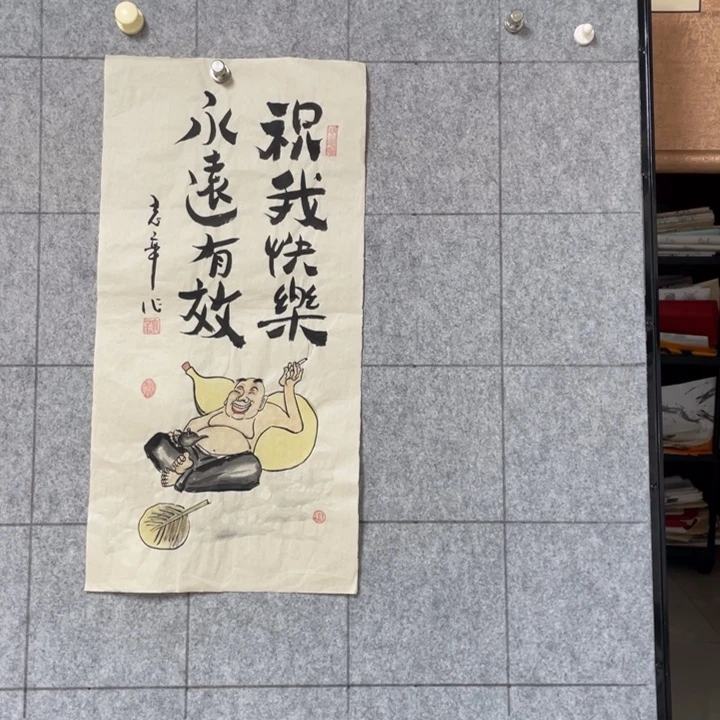 祝我快樂
永遠有效
志章作